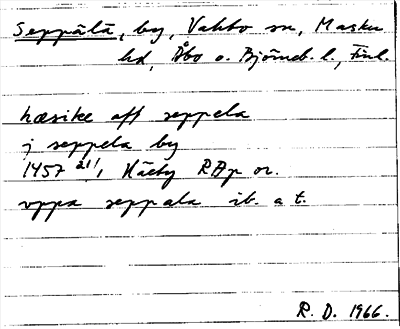 Seppälä, by, Vahto sn, Masku
hd, Åbo o. Björneb. l., Finl.
hæsike aff seppela
j seppela by
1457 21/1, Häeby RAp or.
vppa seppala ib. a t.
R. D. 1966.